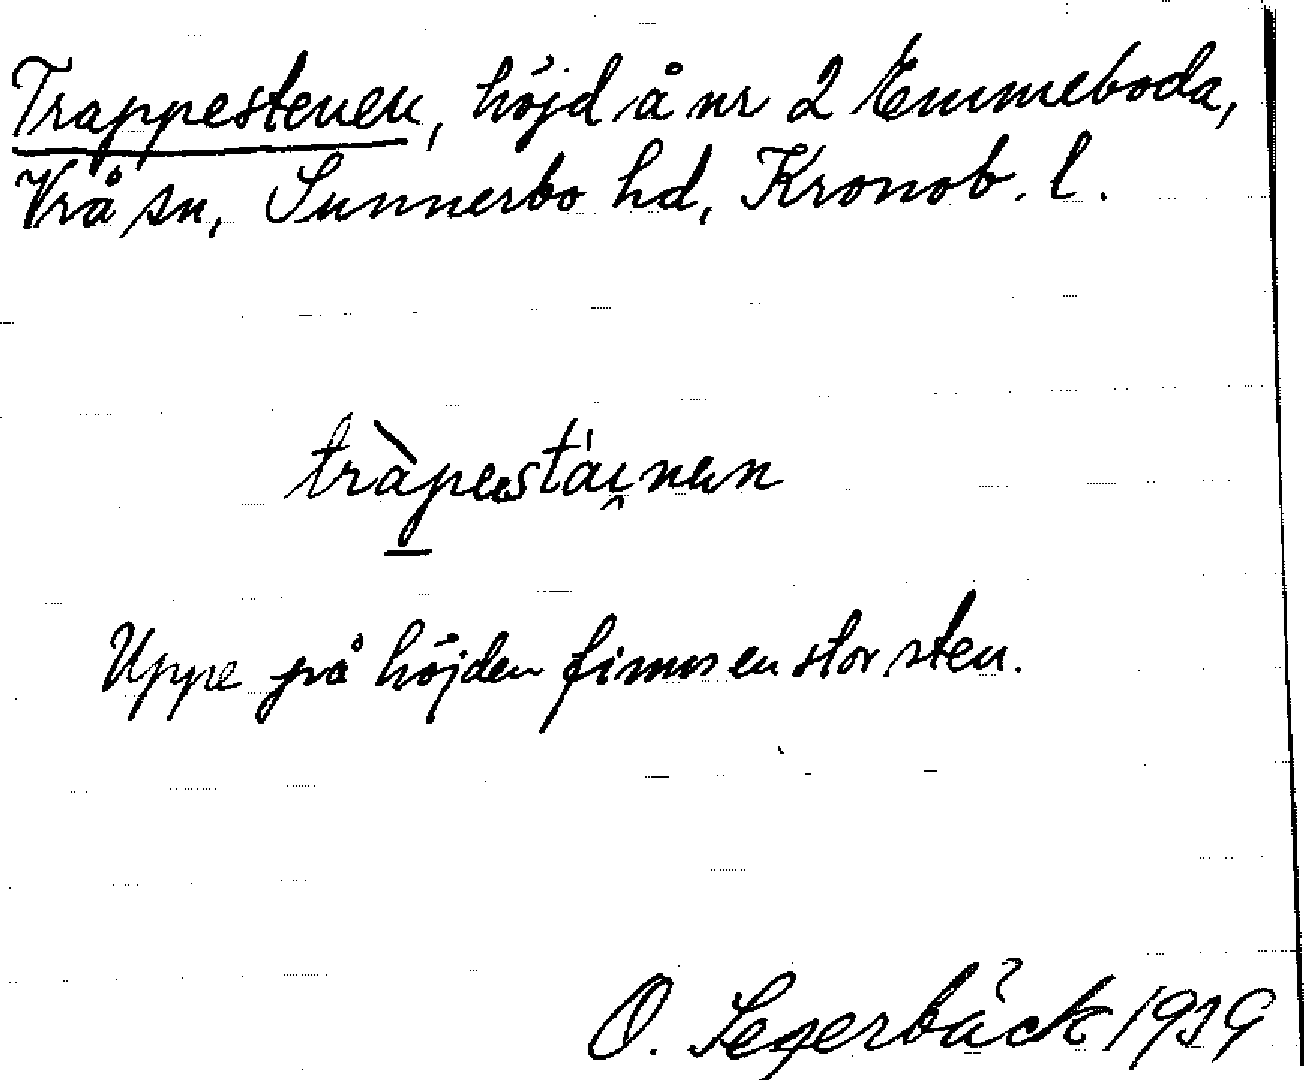 Trappestenen, höjd å nr 2 Emmeboda,
Vrå sn, Sunnerbo hd, Kronob. l.
Uppe på höjden finnes en stor sten.
O. Segerbäck 1939